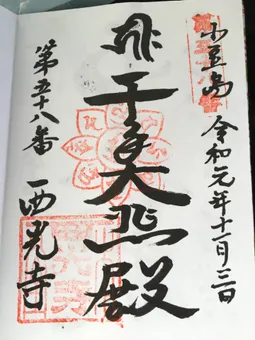 小豆島 令和元年十一月三日
千手大悲殿
第五十八番 西光寺